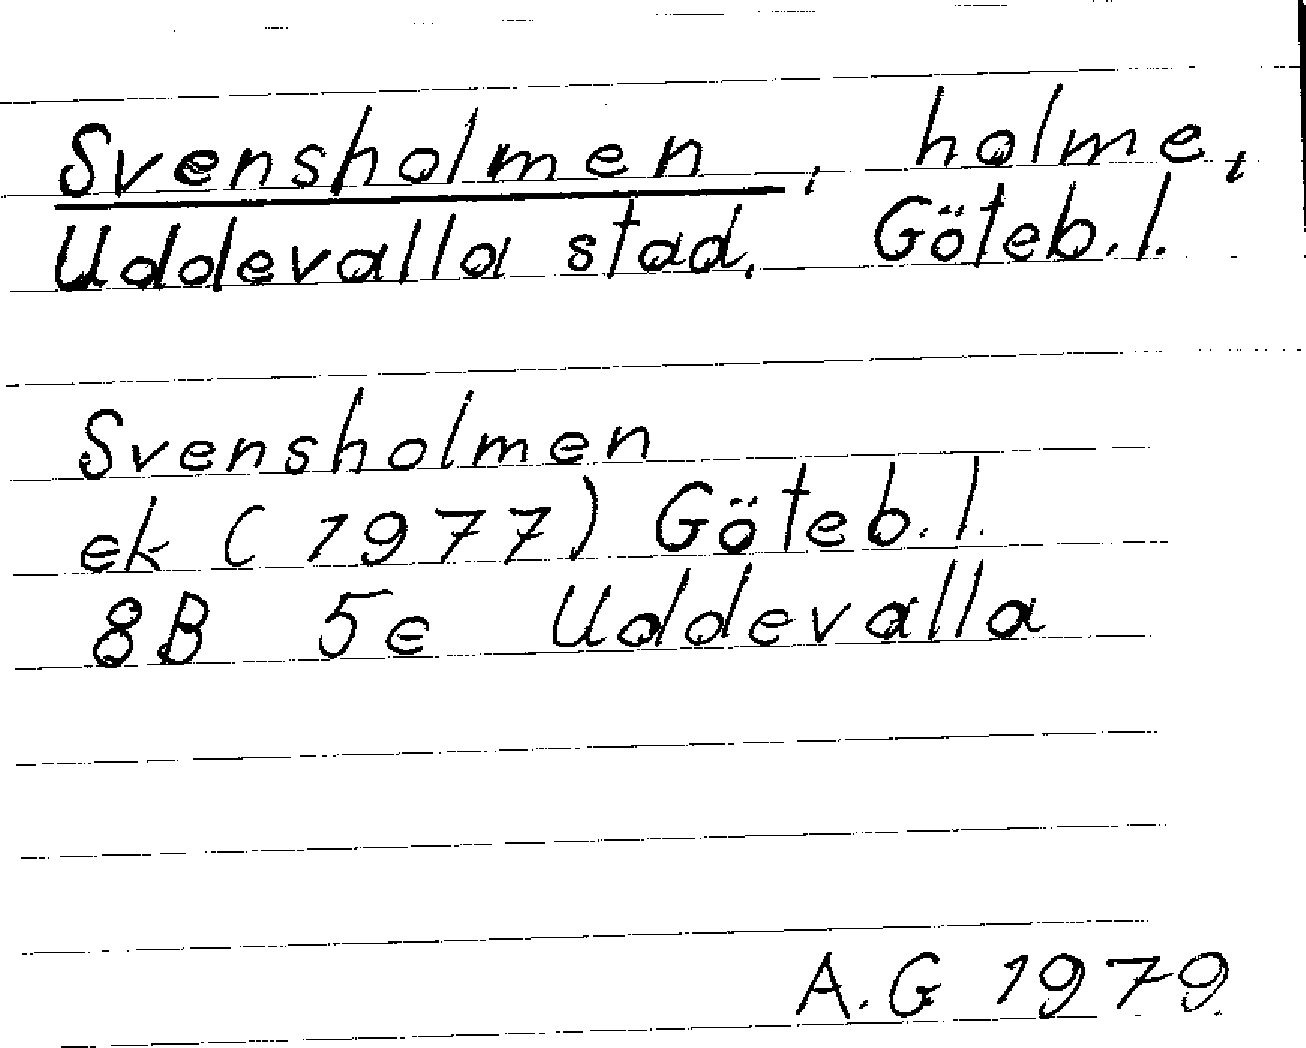 Svensholmen, holme,
Uddevalla stad, Göteb.l.
Svensholmen
ek (1977) Göteb.l.
8B 5e Uddevalla
A.G 1979.